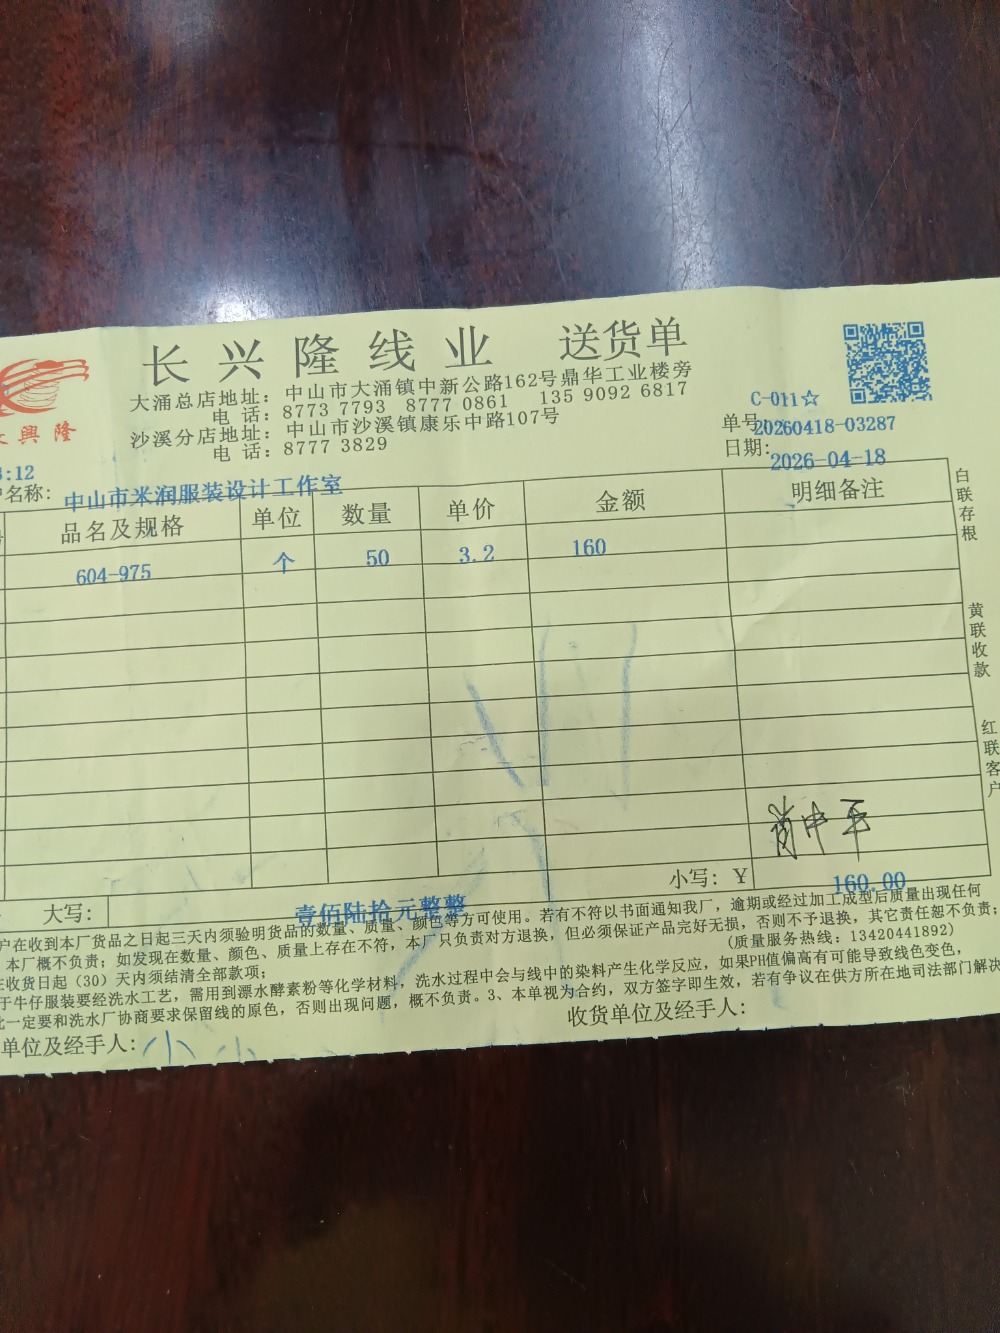 长兴隆线业 送货单
大涌总店地址：中山市大涌镇中新公路162号鼎华工业楼旁
电 话：8773 7793 8777 0861 135 9092 6817
沙溪分店地址：中山市沙溪镇康乐中路107号
电 话：8777 3829
興隆
C-011☆
单号:20260418-03287
日期:2026-04-18
:12
户名称：中山市米润服装设计工作室
品名及规格 单位 数量 单价 金额 明细备注
604-975 个 50 3.2 160
白联存根
黄联收款
红联客户
肖中平
大写：壹佰陆拾元整整 小写：￥160.00
户在收到本厂货品之日起三天内须验明货品的数量、质量、颜色等方可使用。若有不符以书面通知我厂，逾期或经过加工成型后质量出现任何
本厂概不负责；如发现在数量、颜色、质量上存在不符，本厂只负责对方退换，但必须保证产品完好无损，否则不予退换，其它责任恕不负责；
在收货日起（30）天内须结清全部款项； (质量服务热线：13420441892)
于牛仔服装要经洗水工艺，需用到漂水酵素粉等化学材料，洗水过程中会与线中的染料产生化学反应，如果PH值偏高有可能导致线色变色，
此一定要和洗水厂协商要求保留线的原色，否则出现问题，概不负责。3、本单视为合约，双方签字即生效，若有争议在供方所在地司法部门解决
单位及经手人： 收货单位及经手人：